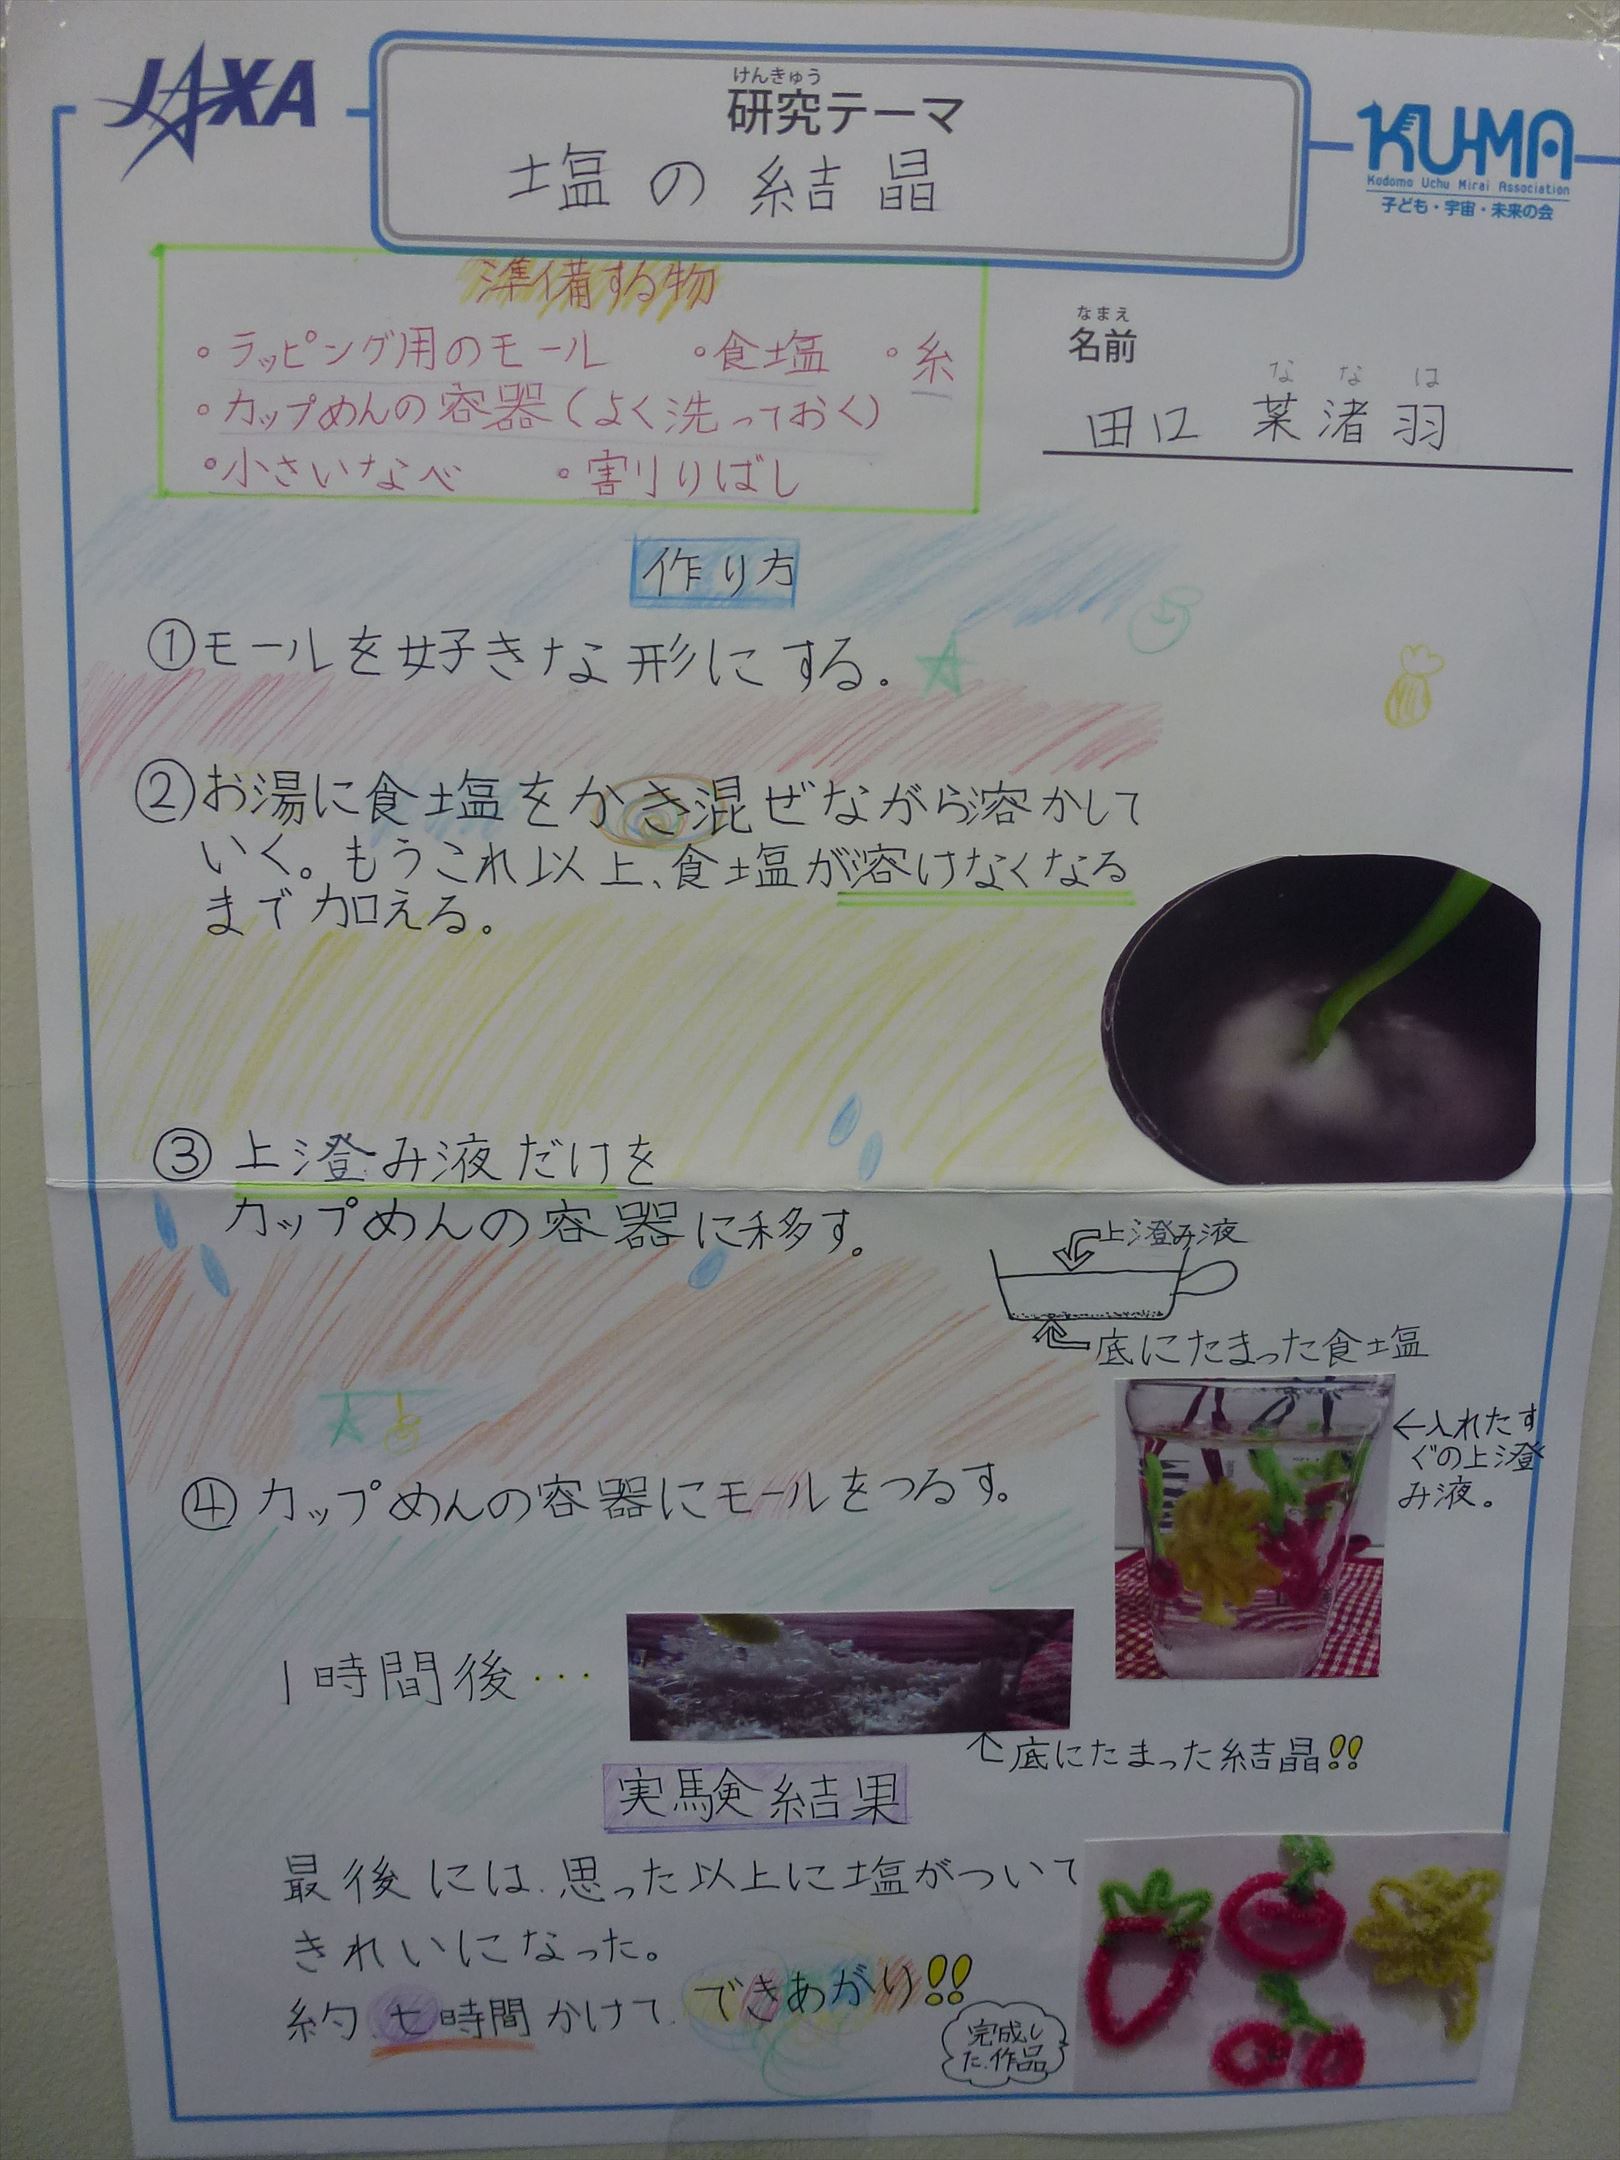 JAXA
けんきゅう
研究テーマ
塩の結晶
KUMA
Kodomo Uchu Mirai Association
子ども・宇宙・未来の会
準備する物
・ラッピング用のモール ・食塩 ・糸
・カップめんの容器(よく洗っておく)
・小さいなべ ・割りばし
なまえ
名前
ななは
田口 菜渚羽
作り方
①モールを好きな形にする。
②お湯に食塩をかき混ぜながら溶かして
いく。もうこれ以上、食塩が溶けなくなる
まで加える。
③上澄み液だけを
カップめんの容器に移す。
上澄み液
底にたまった食塩
④カップめんの容器にモールをつるす。
←入れたす
ぐの上澄
み液。
1時間後・・・
↑底にたまった結晶!!
実験結果
最後には、思った以上に塩がついて
きれいになった。
約、七時間かけて、できあがり!!
完成し
た、作品